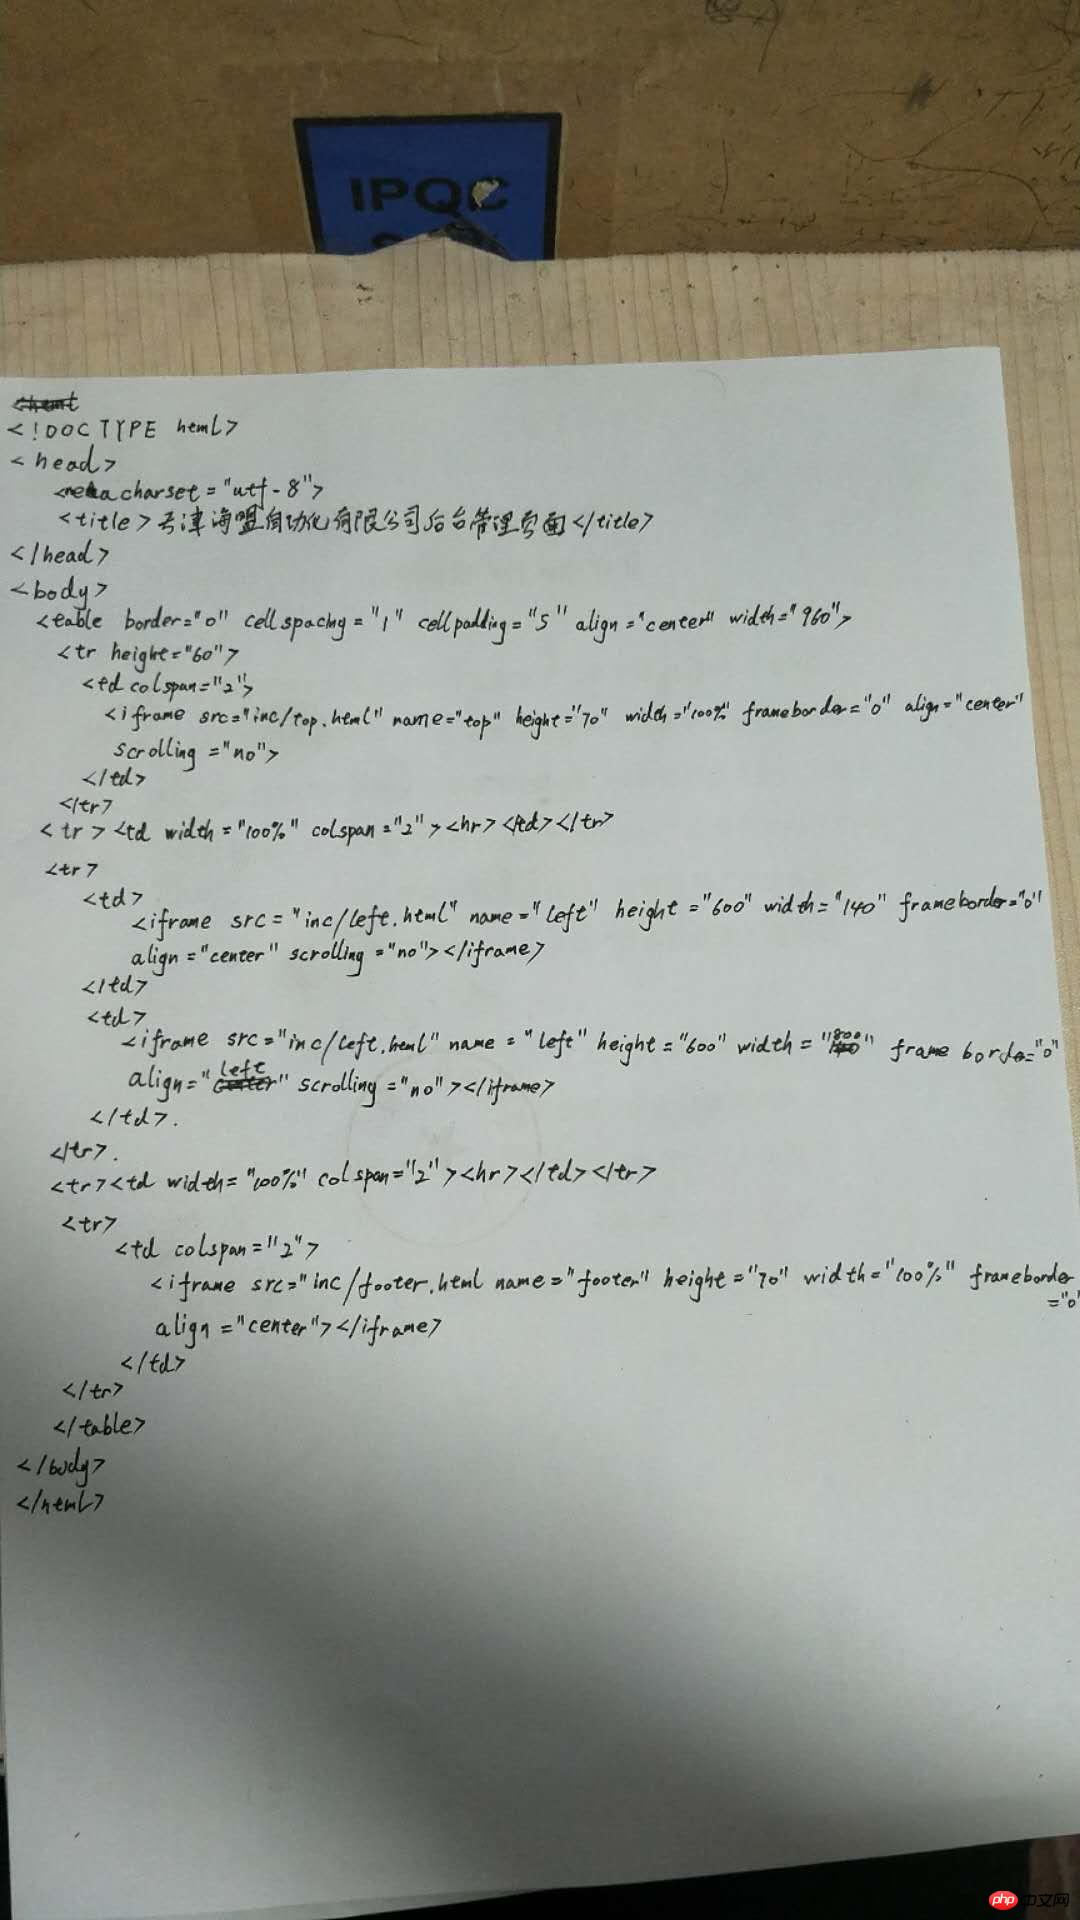 IPQC
<!DOCTYPE html>
<head>
<meta charset="utf-8">
<title>天津海盟自动化有限公司后台管理页面</title>
</head>
<body>
<table border="0" cellspacing="1" cellpadding="5" align="center" width="960">
<tr height="60">
<td colspan="2">
<iframe src="inc/top.html" name="top" height="70" width="100%" frameborder="0" align="center"
scrolling="no">
</td>
</tr>
<tr><td width="100%" colspan="2"><hr></td></tr>
<tr>
<td>
<iframe src="inc/left.html" name="left" height="600" width="140" frameborder="0"
align="center" scrolling="no"></iframe>
</td>
<td>
<iframe src="inc/left.html" name="left" height="600" width="800" frameborde="0"
align="left" scrolling="no"></iframe>
</td>.
</tr>.
<tr><td width="100%" colspan="2"><hr></td></tr>
<tr>
<td colspan="2">
<iframe src="inc/footer.html name="footer" height="70" width="100%" frameborder
="0"
align="center"></iframe>
</td>
</tr>
</table>
</body>
</html>
php中文网